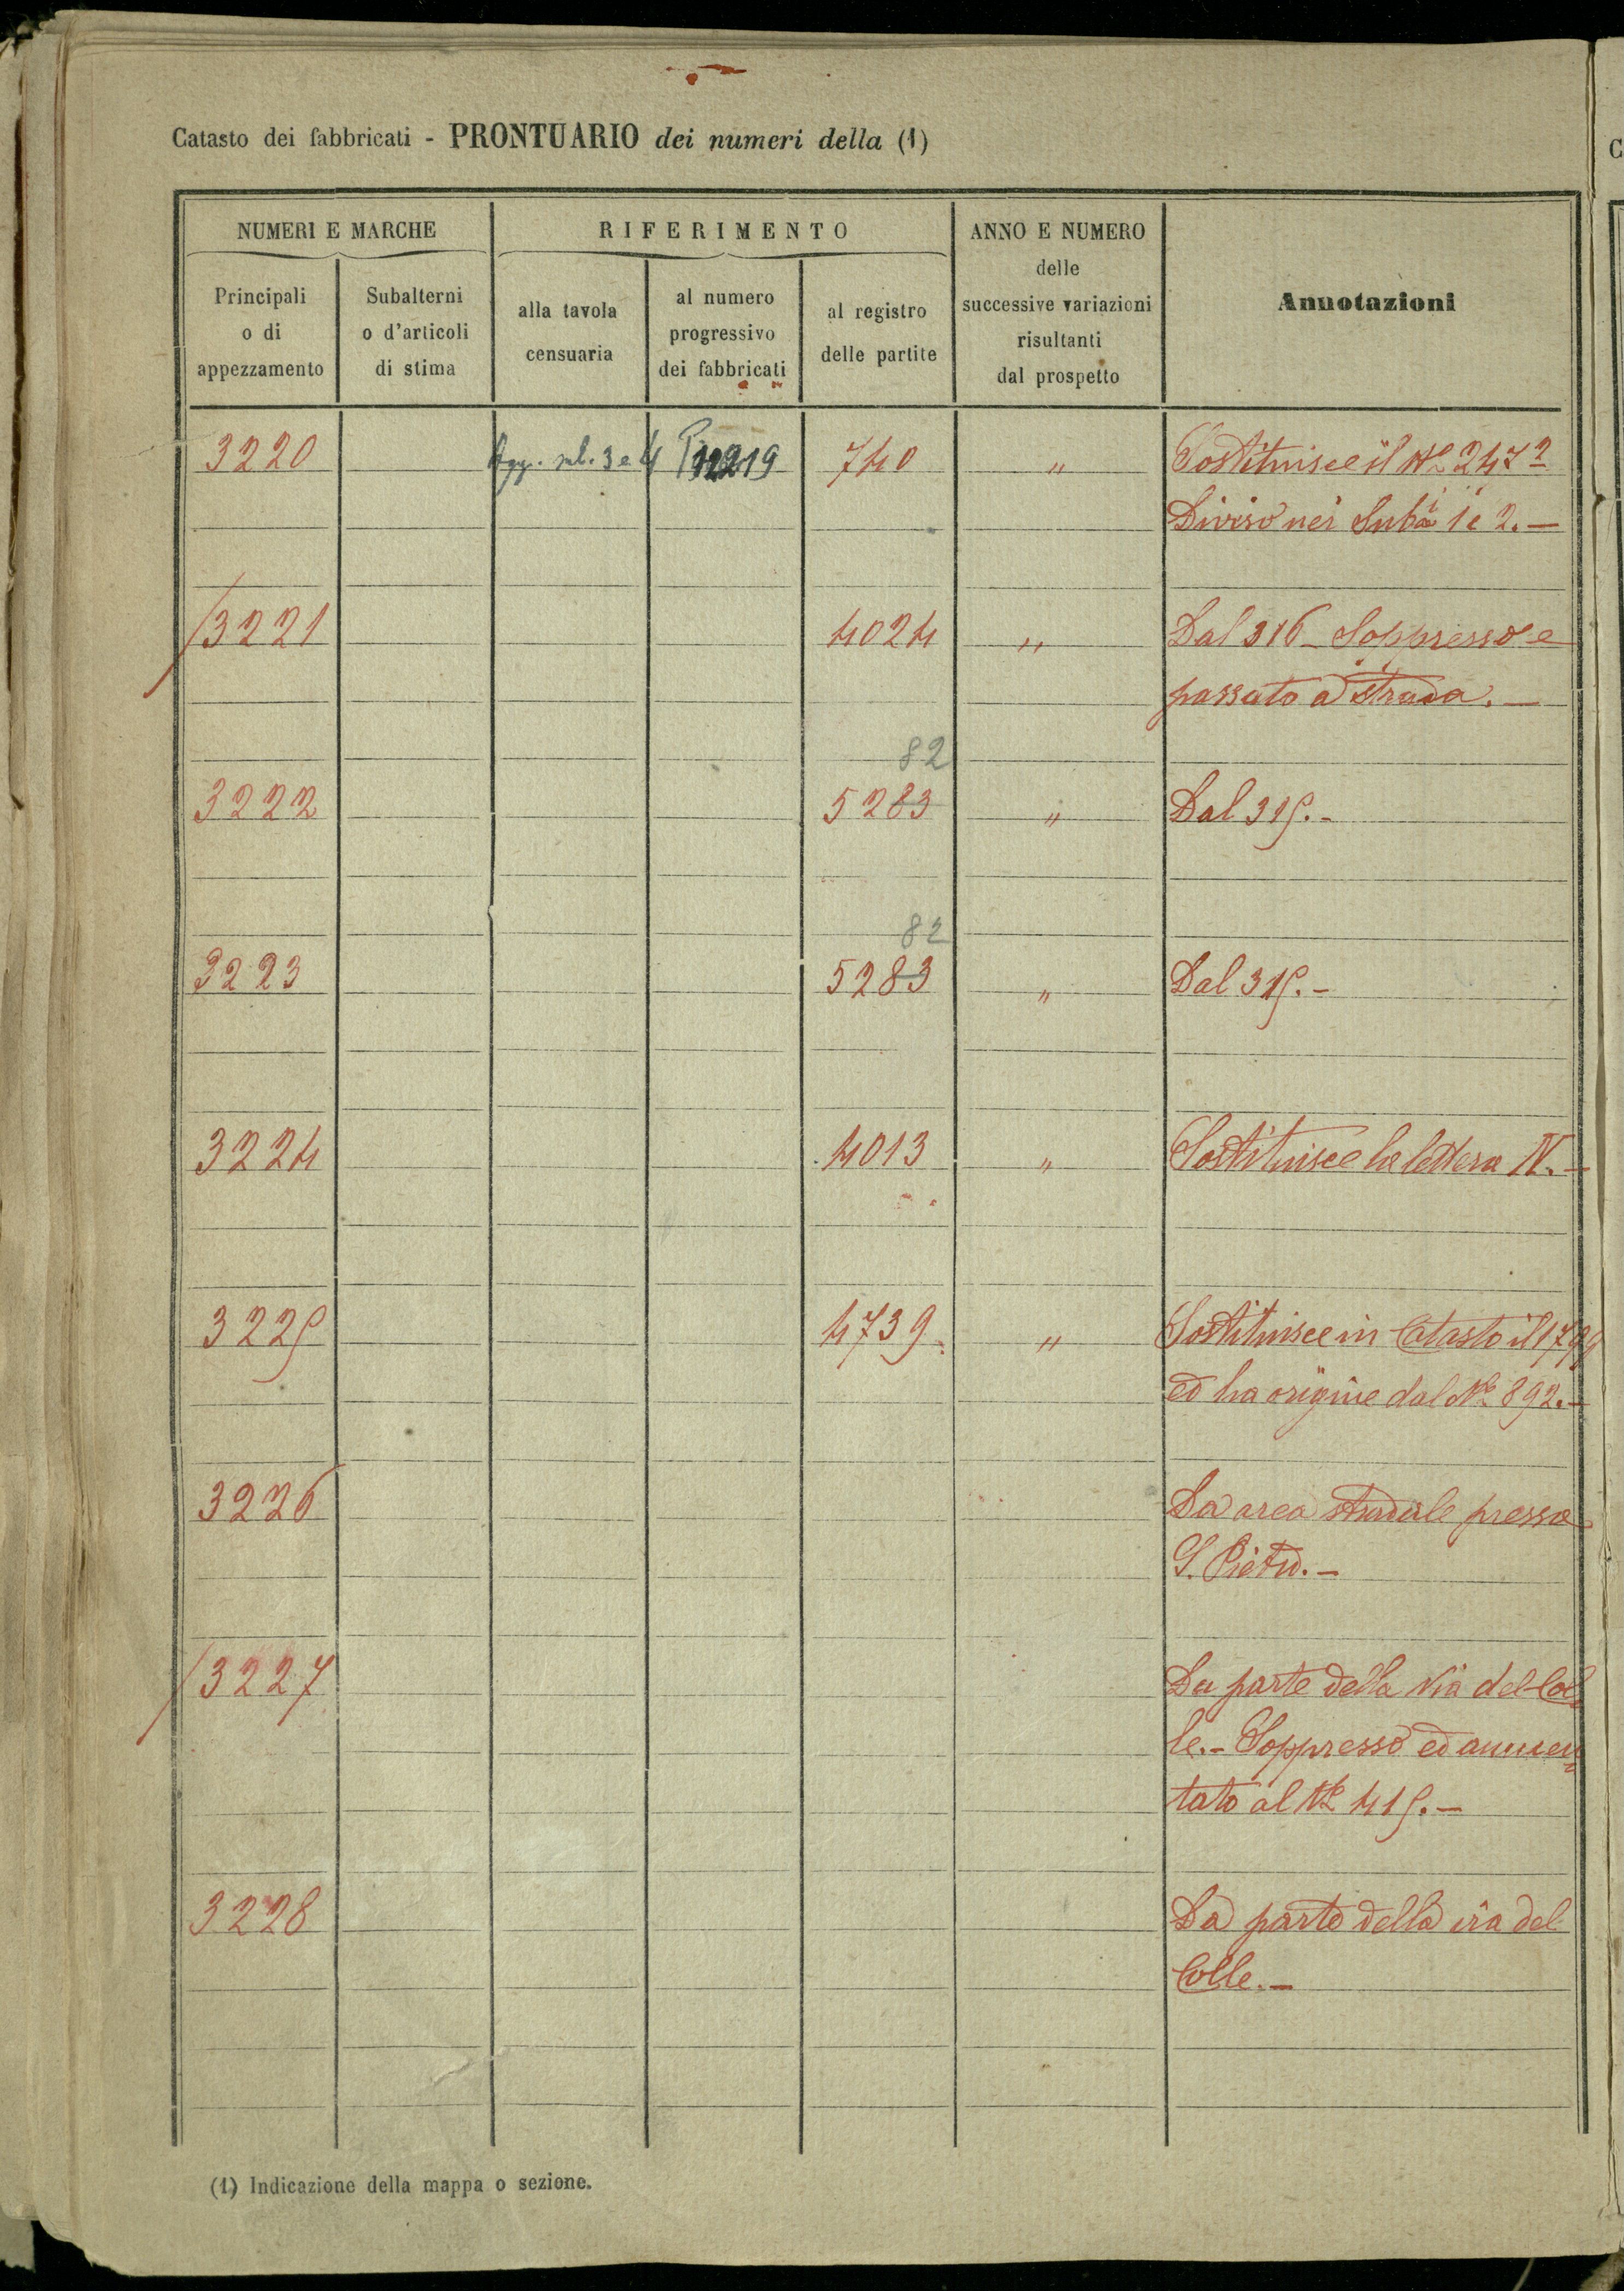 Catasto dei fabbricati - PRONTUARIO dei numeri della (1)
NUMERI E MARCHE
RIFERIMENTO
ANNO E NUMERO
delle
successive variazioni
risultanti
dal prospetto
Annotazioni
Principali
o di
appezzamento
Subalterni
o d'articoli
di stima
alla tavola
censuaria
al numero
progressivo
dei fabbricati
al registro
delle partite
3220 Agg. sub. 3 e 4 740 " Sostituisce il No 2472
Diviso nei Subi 1 e 2. —
3221 4024 " Dal 316 - Soppresso e
passato a strada. —
82
3222 5283 " Dal 315. -
82
3223 5283 " Dal 315. -
3224 4013 " Sostituisce la lettera N. -
3225 4739. " Sostituisce in Catasto il
ed ha origine dal No 892. -
3226 Da area stradale presso
S. Pietro. -
3227 Da parte della Via del Col=
le. - Soppresso ed aumen=
tato al No 415. -
3228 Da parte della via del
Colle. -
(1) Indicazione della mappa o sezione.